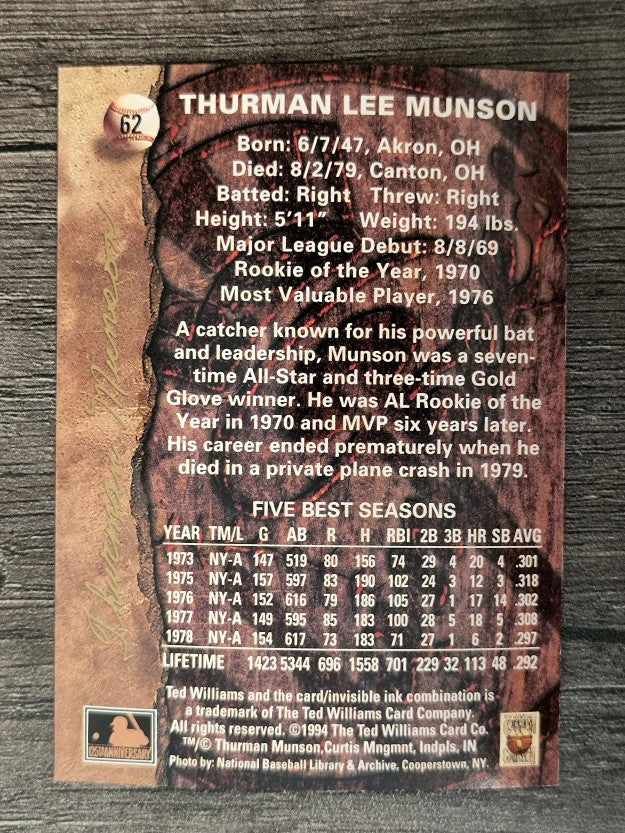 62
THURMAN LEE MUNSON
Born: 6/7/47, Akron, OH
Died: 8/2/79, Canton, OH
Batted: Right Threw: Right
Height: 5'11" Weight: 194 lbs.
Major League Debut: 8/8/69
Rookie of the Year, 1970
Most Valuable Player, 1976
A catcher known for his powerful bat
and leadership, Munson was a seven-
time All-Star and three-time Gold
Glove winner. He was AL Rookie of the
Year in 1970 and MVP six years later.
His career ended prematurely when he
died in a private plane crash in 1979.
Thurman Munson
FIVE BEST SEASONS
YEAR TM/L G AB R H RBI 2B 3B HR SB AVG
1973 NY-A 147 519 80 156 74 29 4 20 4 .301
1975 NY-A 157 597 83 190 102 24 3 12 3 .318
1976 NY-A 152 616 79 186 105 27 1 17 14 .302
1977 NY-A 149 595 85 183 100 28 5 18 5 .308
1978 NY-A 154 617 73 183 71 27 1 6 2 .297
LIFETIME 1423 5344 696 1558 701 229 32 113 48 .292
Ted Williams and the card/invisible ink combination is
a trademark of The Ted Williams Card Company.
All rights reserved. ©1994 The Ted Williams Card Co.
™/© Thurman Munson,Curtis Mngmnt, Indpls, IN
Photo by: National Baseball Library & Archive, Cooperstown, NY.
125TH ANNIVERSARY